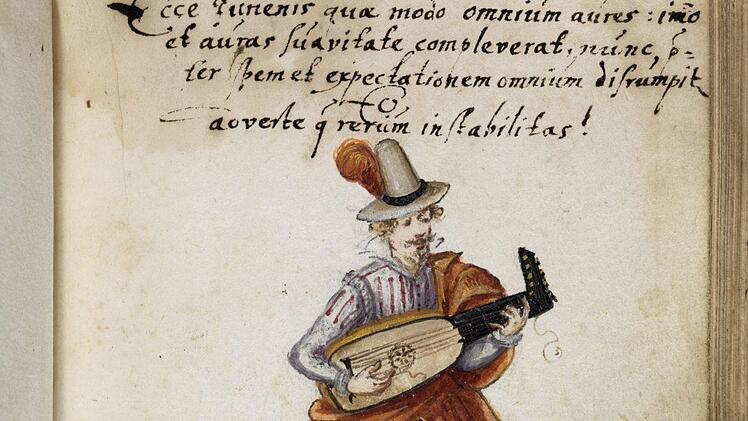 Ecce Iuuenis quæ modo omnium aures: imò
et auras suavitate compleverat, nunc p̱-
ter spem et expectationem omnium disrumpit
O
adverte q̄ rerum instabilitas!